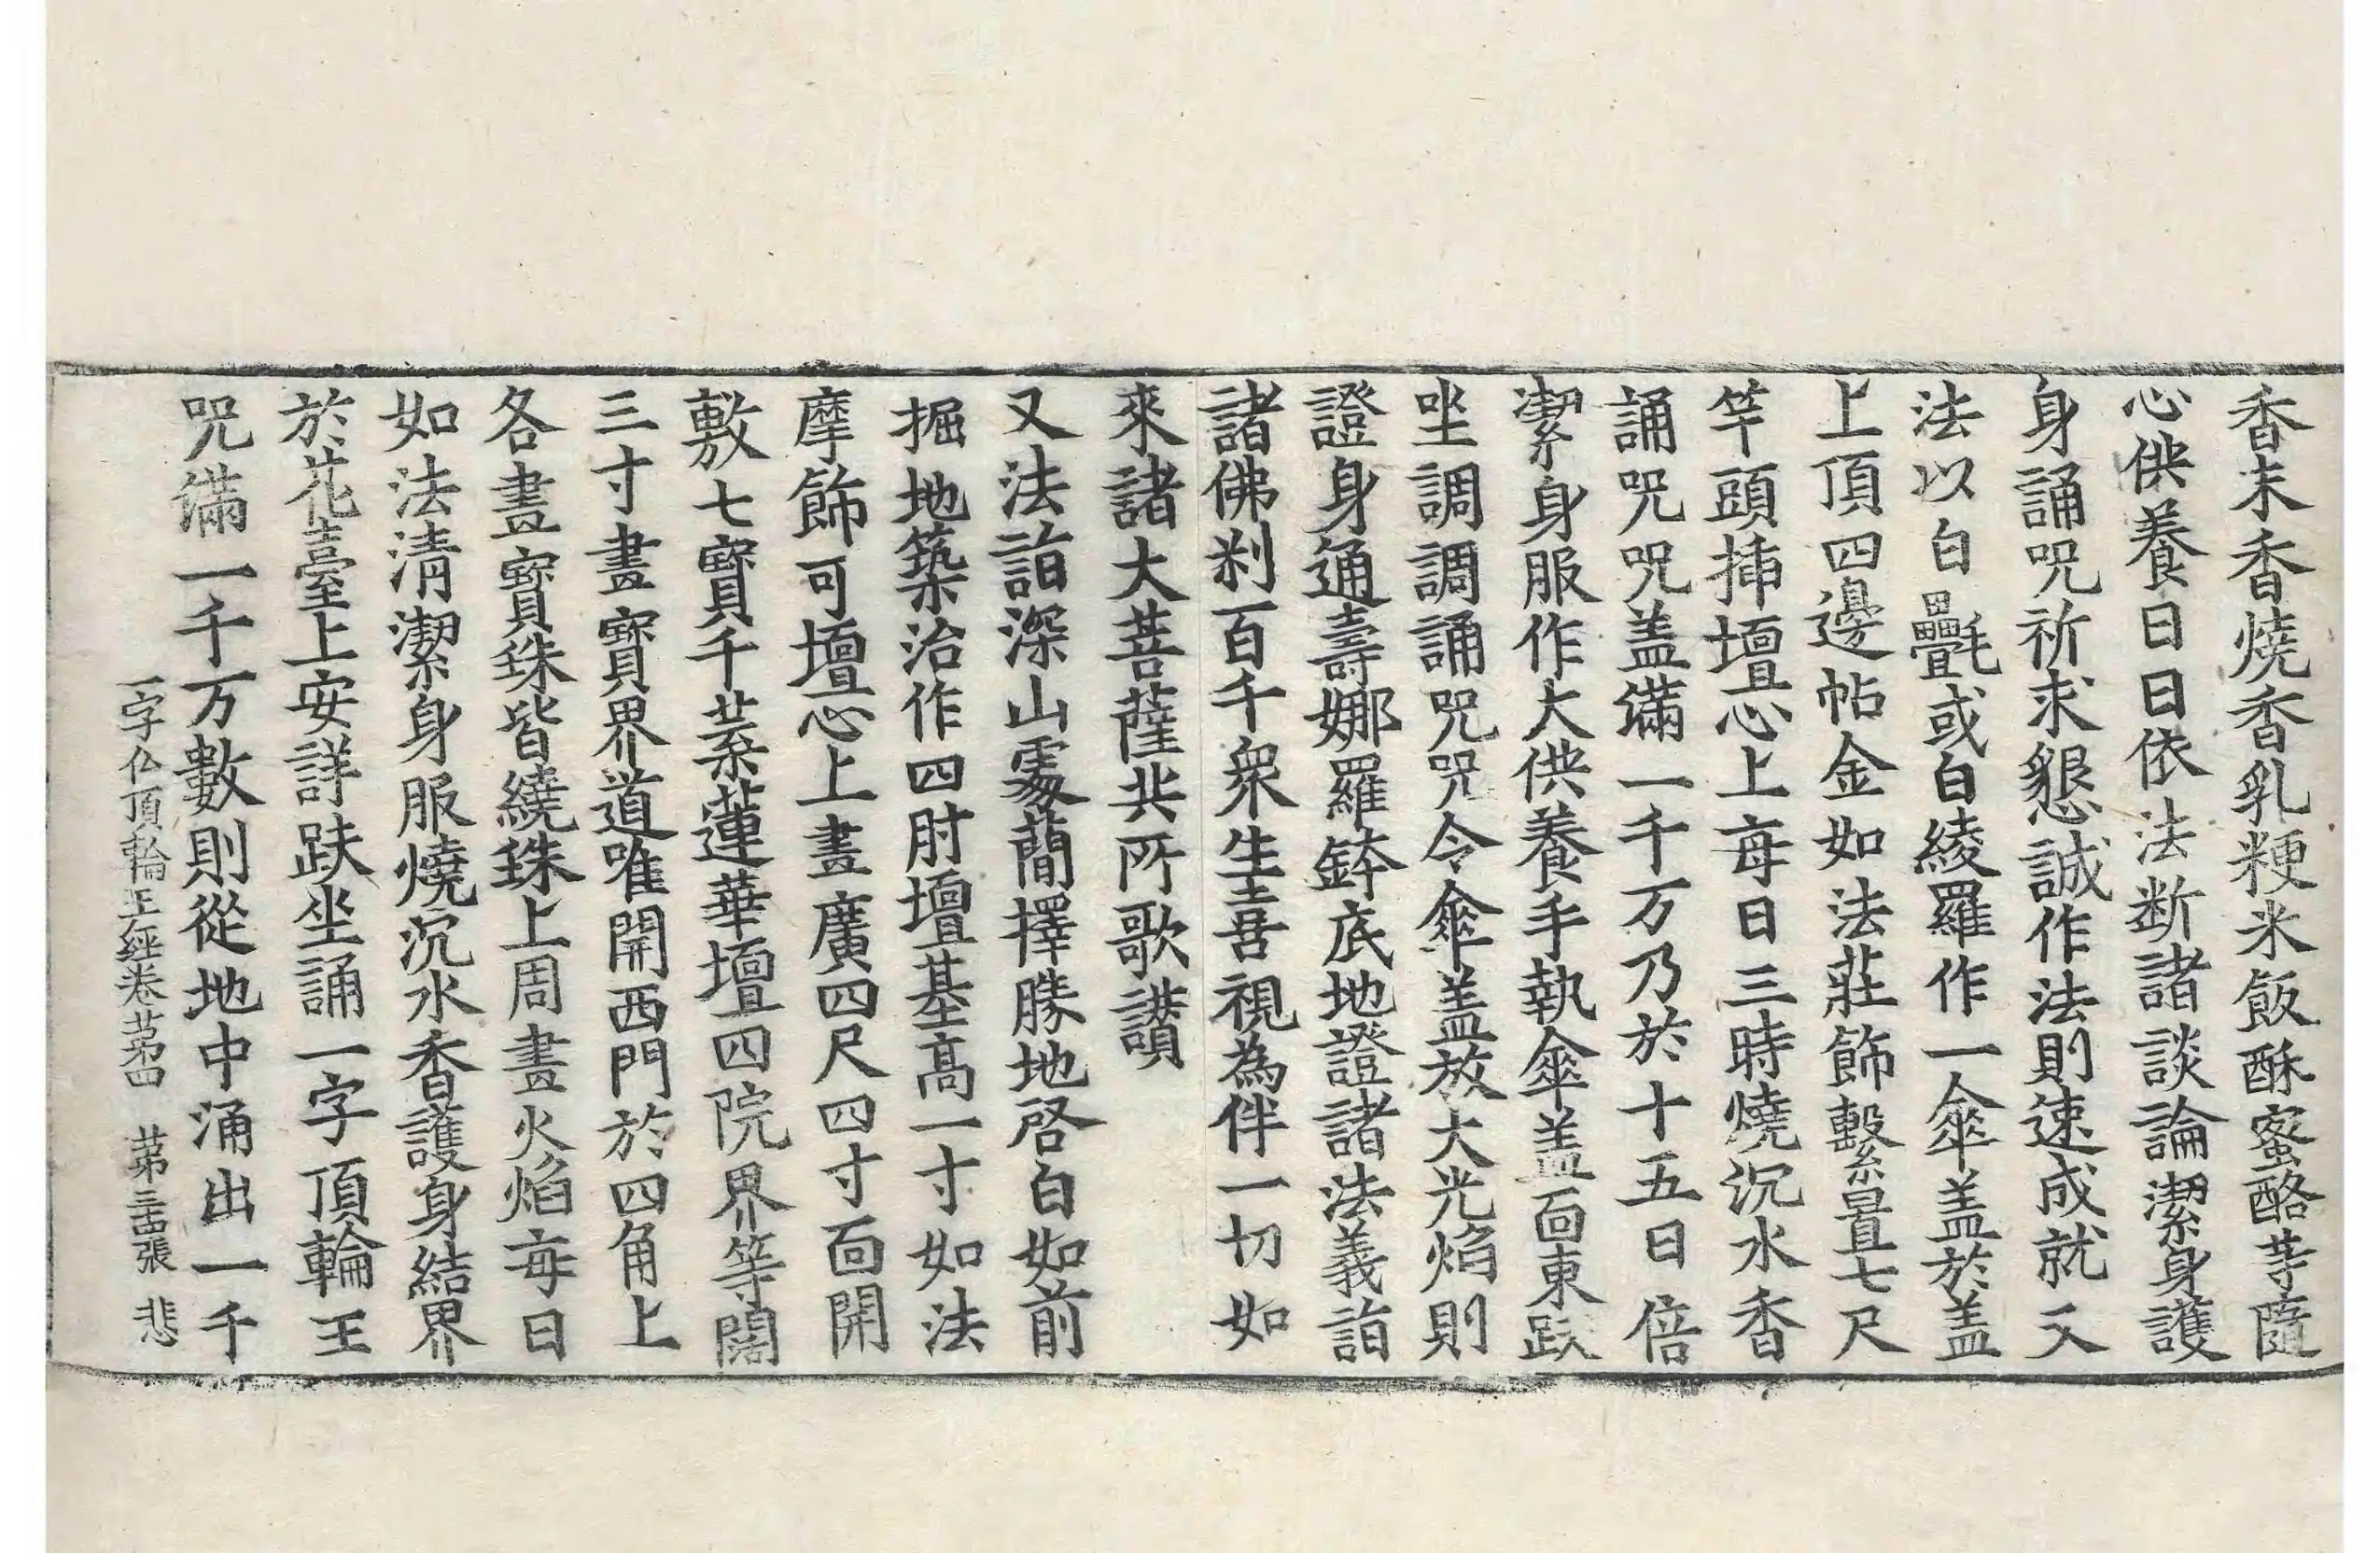 香末香燒香乳粳米飯酥蜜酪等隨
心供養日日依法法断諸談論潔身護
身誦咒祈求懇誠作法則速成就又
法以白㲲或白綾羅作一傘盖於盖
上頂四邊帖金如法莊飾繫量七尺
竿頭揷壇心上每日三時燒沉水香
誦咒咒盖滿一千万乃於十五日倍
潔身服作大供養手執傘盖面東趺
坐調調誦咒咒令傘盖放大光焰則
證身通壽娜羅鉢底地證諸法義詣
諸佛刹百千衆生善視為伴一切如
來諸大菩薩共所歌讃
又法詣深山處蕳擇勝地啓白如前
掘地築治作四肘壇基高一寸如法
摩飾可壇心上畫廣四尺四寸面開
敷七寶千葉蓮華壇四院界等闊
三寸畫寶界道唯開西門於四角上
各畫寶珠皆繞珠上周畫火焰每日
如法清潔身服燒沉水香護身結界
於花臺上安詳趺坐誦一字頂輪王
咒滿一千万數則從地中涌出一千
一字仏頂輪王経卷苐四 苐三十四張 悲